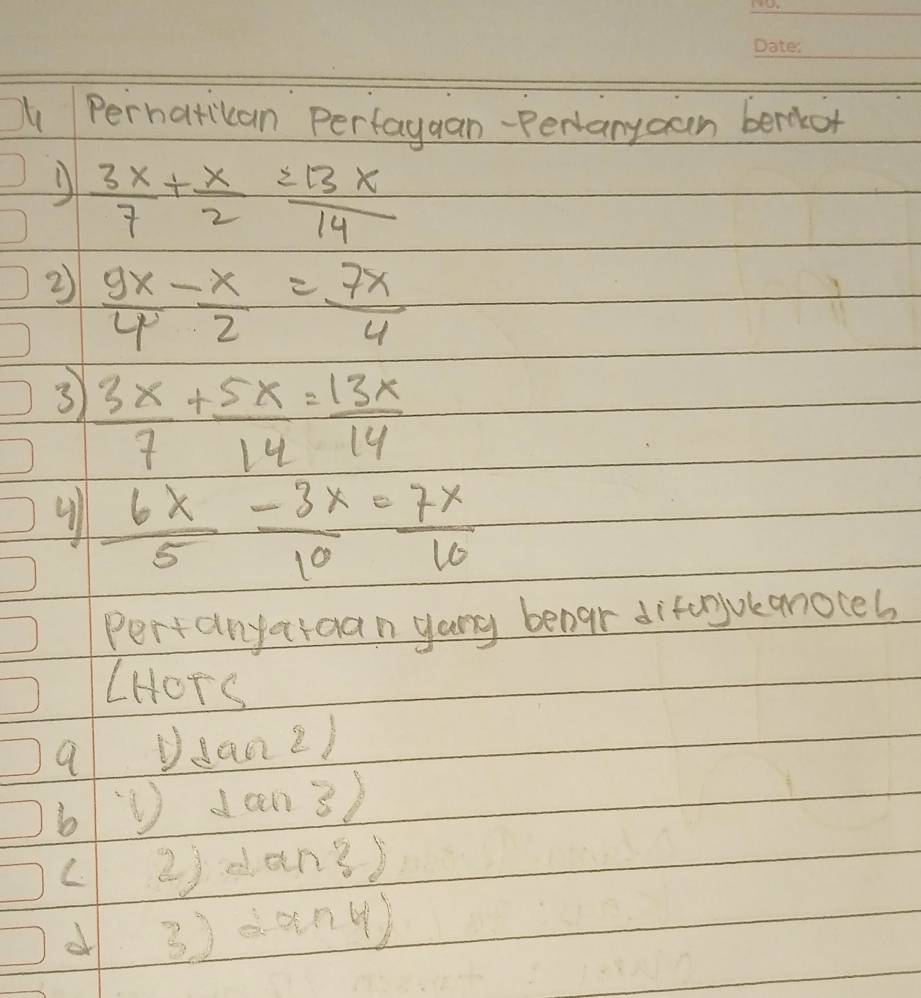 No.
Date:
4 Perhatikan Pertayaan-Pertanyaan berikot
1) 3x/7 + x/2 = 13x/14
2) 9x/4 - x/2 = 7x/4
3) 3x/7 + 5x/14 = 13x/14
4) 6x/5 - 3x/10 = 7x/10
Pertanyataan yang benar ditunjukanoleh
(HOTS
a 1) dan 2)
b 1) dan 3)
c. 2) dan 3)
d 3) dan 4)